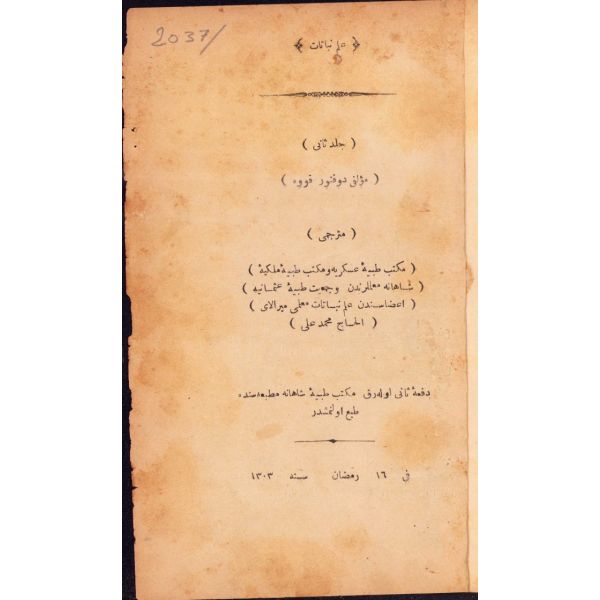 2037/
﴿ علم نباتات ﴾
( جلد ثانی )
( مؤلفی دوقتور قووه )
( مترجمی )
( مكتب طبیهٔ عسكریه و مكتب طبیهٔ ملكیهٔ )
( شاهانه معلملرندن و جمعیت طبیهٔ عثمانیه )
( اعضاسندن علم نباتات معلمی میرالای )
( الحاج محمد علی )
دفعهٔ ثانی اوله‌رق مكتب طبیهٔ شاهانه مطبعه‌سنده
طبع اولنمشدر
فی ١٦ رمضان سنه ١٣٠٣